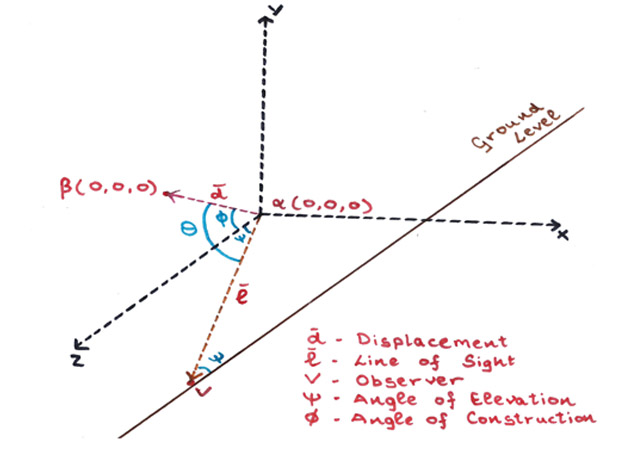 Y
Ground
Level
β(0,0,0)
d̄
α(0,0,0)
θ
φ
ψ
X
l̄
Z
ψ
V
d̄ - Displacement
l̄ - Line of Sight
V - Observer
ψ - Angle of Elevation
φ - Angle of Construction